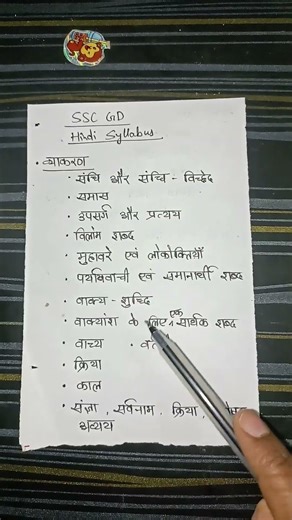 SSC GD
Hindi Syllabus
• व्याकरण
• संधि और संधि - विच्छेद
• समास
• उपसर्ग और प्रत्यय
• विलोम शब्द
• मुहावरे एवं लोकोक्तियाँ
• पर्यायवाची एवं समानार्थी शब्द
• वाक्य - शुद्धि
• वाक्यांश के लिए एक सार्थक शब्द
• वाच्य •
• क्रिया
• काल
• संज्ञा, सर्वनाम, क्रिया,
अव्यय